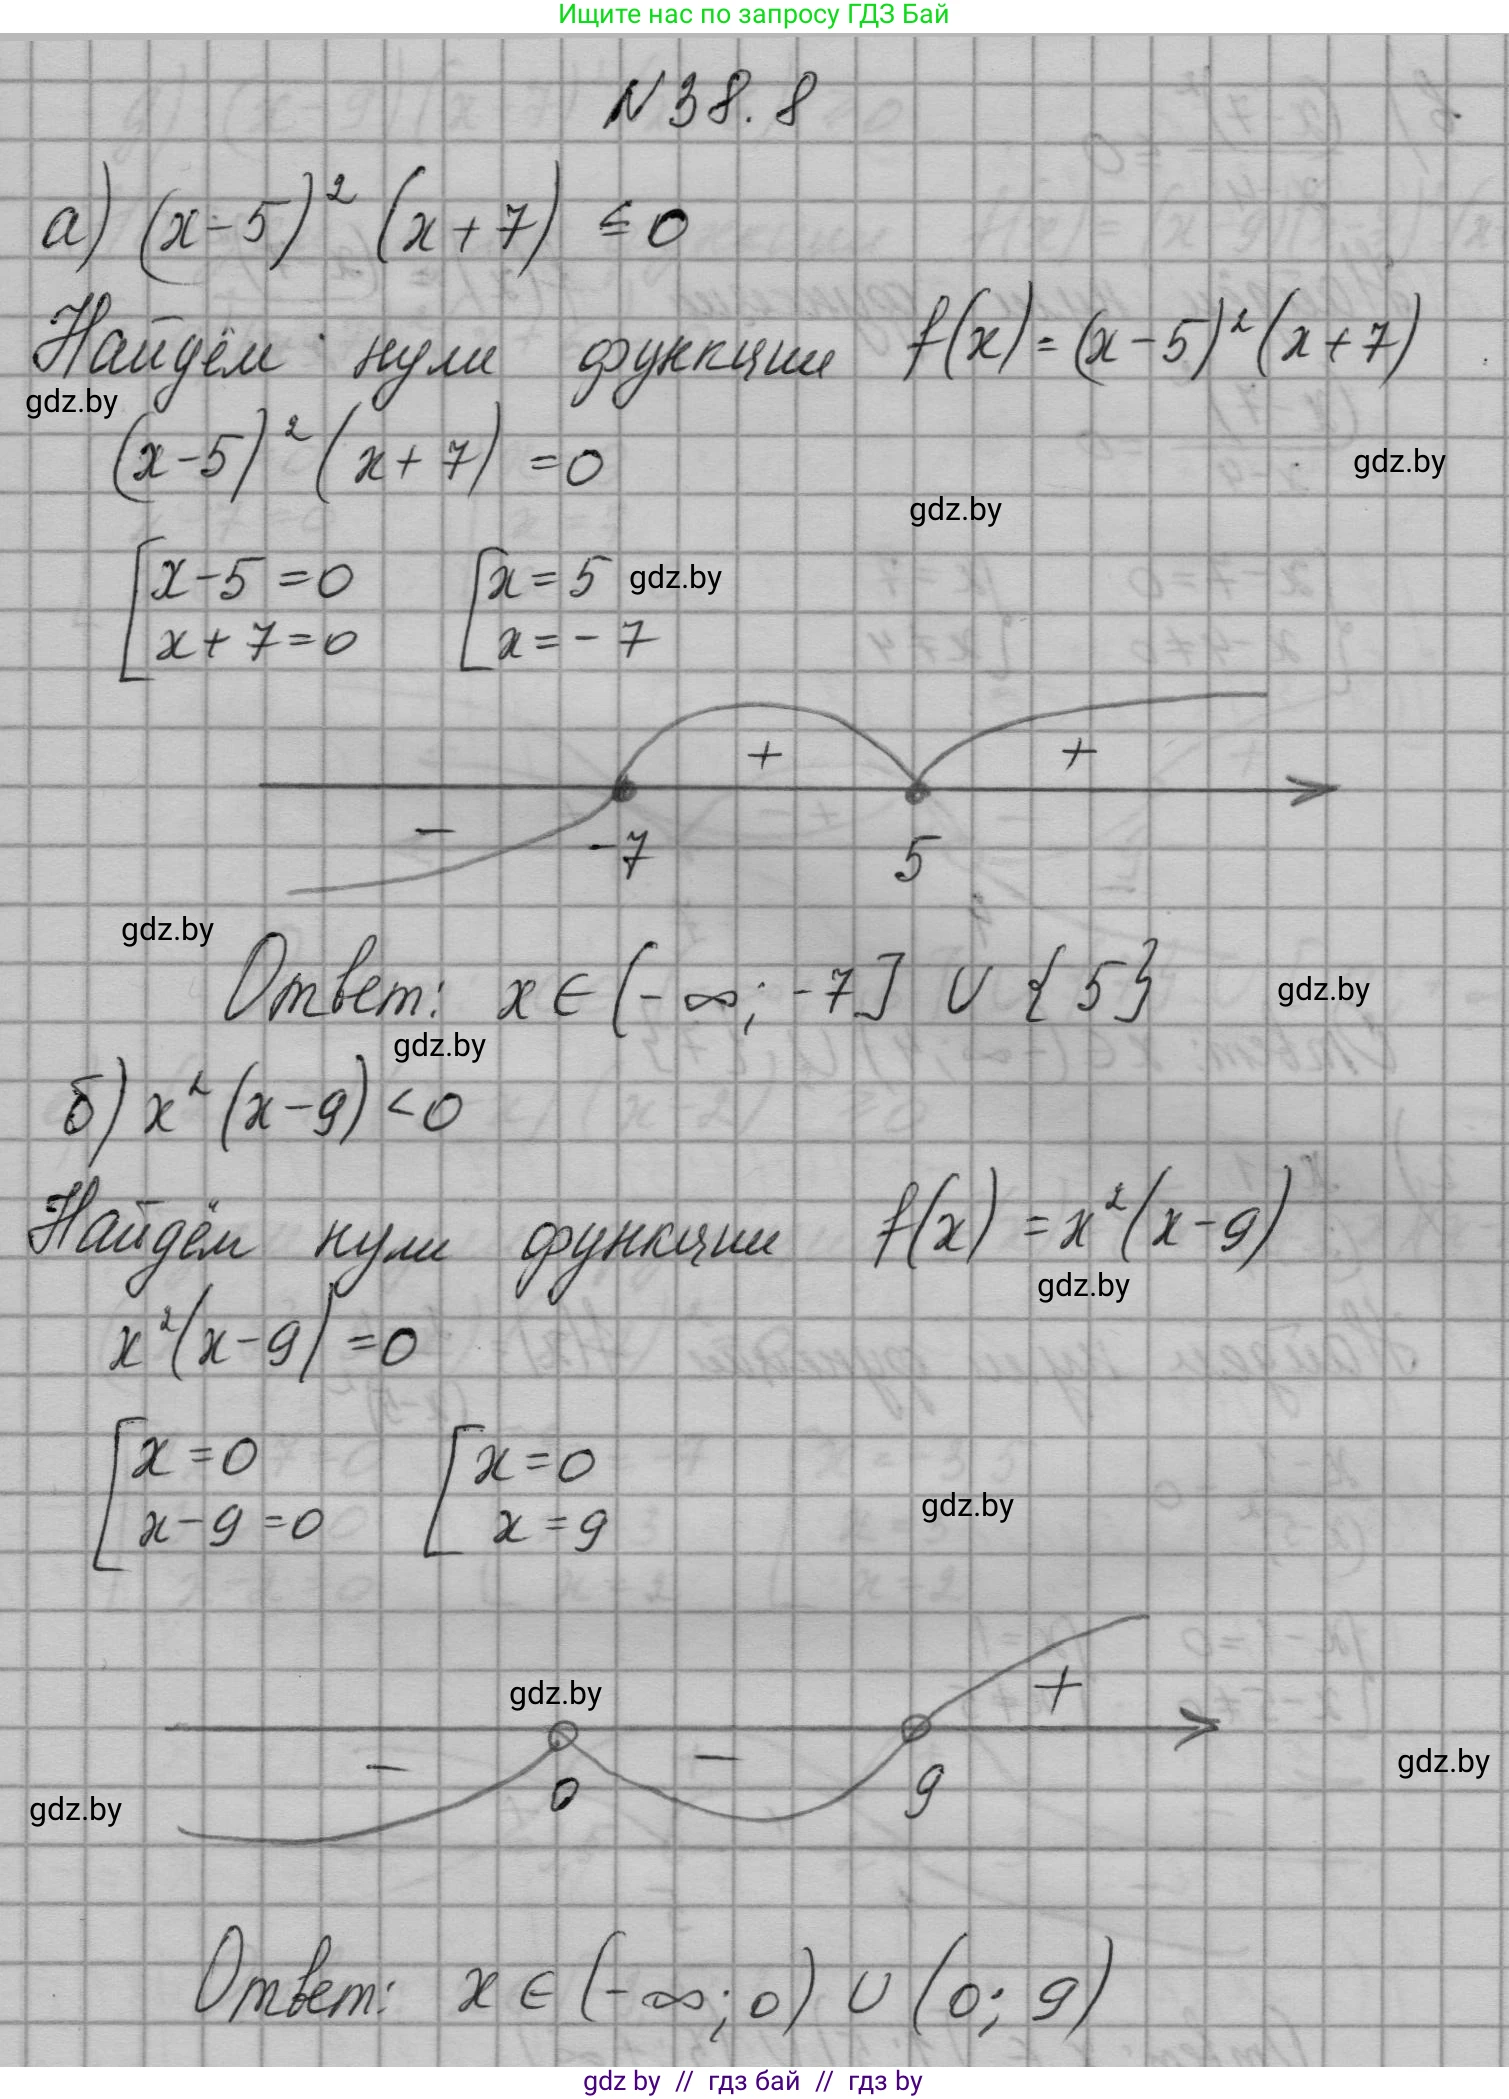 Ищите нас по запросу ГДЗ Бай
N 38.8
а) (x-5)² (x+7) ≤ 0
Найдём нули функции f(x) = (x-5)² (x+7)
gdz.by
(x-5)² (x+7) = 0
gdz.by
gdz.by
[x-5=0 [x=5 gdz.by
x+7=0 x=-7
+ +
-
-7 5
gdz.by
Ответ: x∈(-∞; -7] ∪ {5}
gdz.by
gdz.by
б) x² (x-9) < 0
Найдём нули функции f(x) = x² (x-9)
gdz.by
x² (x-9) = 0
[x=0 [x=0
gdz.by
x-9=0 x=9
gdz.by +
- -
gdz.by
0 9
gdz.by
Ответ: x∈(-∞; 0) ∪ (0; 9)
gdz by // гдз бай // гдз by